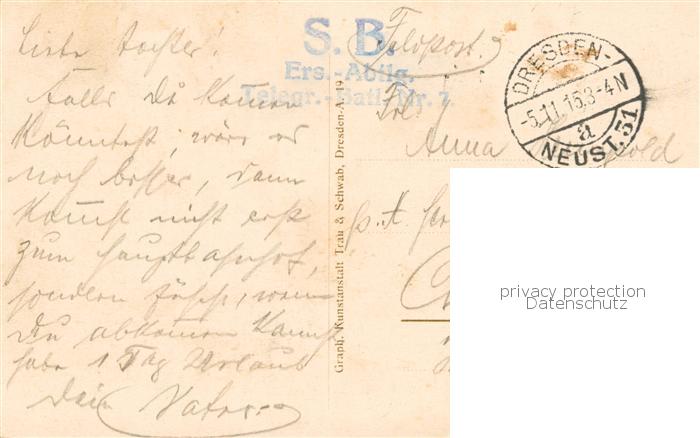 Liebe Tochter!
Falls Du kommen
könntest, wäre es
noch besser, dann
kommst nicht erst
zum Hauptbahnhof,
sondern
Du abkommen kannst
habe 1 Tag Urlaub
Dein Vater.
S. B.
Ers.-Abtlg.
Telegr.-Batl. Nr. 7
Feldpost.
DRESDEN-
-5.11.15.3-4N
a
NEUST. 31
Frl.
Anna
Graph. Kunstanstalt Trau & Schwab, Dresden-A. 19.
privacy protection
Datenschutz